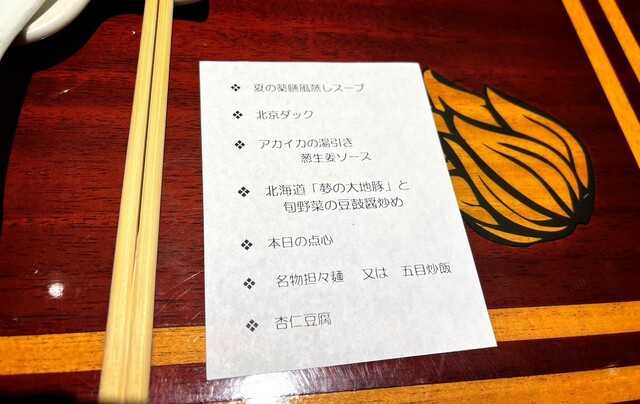 ❖ 夏の薬膳風蒸しスープ
❖ 北京ダック
❖ アカイカの湯引き
葱生姜ソース
❖ 北海道「夢の大地豚」と
旬野菜の豆鼓醤炒め
❖ 本日の点心
❖ 名物担々麺 又は 五目炒飯
❖ 杏仁豆腐